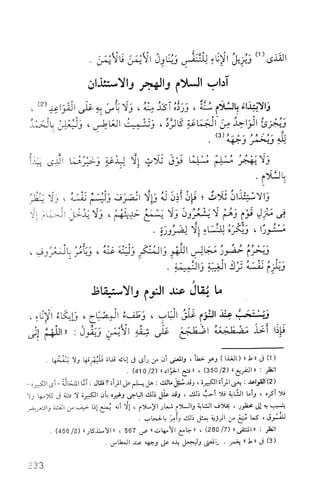 القَذَى (1) وَيُزِيلُ الْإِنَاءِ لِلتَّنَفُّسِ وَيُنَاوِلُ الْأَيْمَنَ فَالْأَيْمَنَ .
آداب السلام والهجر والاستئذان
وَالابْتِدَاءُ بِالسَّلَامِ سُنَّةٌ ، وَرَدُّهُ آكَدُ مِنْهُ ، وَلَا بَأْسَ بِهِ عَلَى الْقَوَاعِدِ (2) ،
وَيُجْزِئُ الْوَاحِدُ مِنَ الْجَمَاعَةِ كَالرَّدِّ ، وَتَشْمِيتُ الْعَاطِسِ ، وَلْيُعْلِنْ بِالْحَمْدِ
لِلَّهِ وَيُخَمِّرُ وَجْهَهُ (3) .
وَلَا يَهْجُرُ مُسْلِمٌ مُسْلِمًا فَوْقَ ثَلَاثٍ إِلَّا لِبِدْعَةٍ وَخَيْرُهُمَا الَّذِي يَبْدَأُ
بِالسَّلَامِ .
وَالاسْتِئْذَانُ ثَلَاثٌ ؛ فَإِنْ أُذِنَ لَهُ وَإِلَّا انْصَرَفَ وَلْيُسَمِّ نَفْسَهُ ، وَلَا يَنْظُرُ
فِي مَنْزِلِ قَوْمٍ وَهُمْ لَا يَشْعُرُونَ وَلَا يَسْمَعُ حَدِيثَهُمْ ، وَلَا يَدْخُلِ الْحَمَّامَ إِلَّا
مَسْتُورًا ، وَيُكْرَهُ لِلنِّسَاءِ إِلَّا لِضَرُورَةٍ .
وَيَحْرُمُ حُضُورُ مَجَالِسِ اللَّهْوِ وَالْمُنْكَرِ وَلْيَنْهَ عَنْهُ ، وَيَأْمُرُ بِالْمَعْرُوفِ ،
وَيَلْزَمُ نَفْسَهُ تَرْكَ الْغِيبَةِ وَالنَّمِيمَةِ .
ما يُقالُ عند النوم والاستيقاظ
وَيُسْتَحَبُّ عِنْدَ النَّوْمِ غَلْقُ الْبَابِ ، وَطَفْءُ الْمِصْبَاحِ ، وَإِيكَاءُ الْإِنَاءِ ،
فَإِذَا أَخَذَ مَضْطَجَعَهُ اضْطَجَعَ عَلَى شِقِّهِ الْأَيْمَنِ وَيَقُولُ : « اللَّهُمَّ إِنِّي
(1) في « ط » ( الغذا ) وهو خطأ ، والمعنى أن من رأى في إنائه قذاة فليُهْرِقها ولا ينفُخها .
انظر : « التفريع » (350/2) ، « فتح الجواد » (410/2) .
(2) القواعد : يعني المرأة الكبيرة ، وقد سُئل مالك : هل يسلم على المرأة ؟ فقال : أمَّا المُتجالَّة - أي الكبيرة -
فلا أكره ، وأما الشابة فلا أحبُّ ذلك ، وقد علَّق ذلك الباجي وغيره بأن الكبيرة لا فتنة في كلامها ولا
يتسبب به إلى محظور ، بخلاف الشابة والسلام شعار الإسلام ، إلا أنه يُمنع إذا خيف من الفتنة والتعريض
للفسوق ، كما مُنِعَ من الرؤية بمثل ذلك وأُمِرَ بالحجاب .
انظر : « المنتقى » (280/7) ، « جامع الأمهات » ص 567 ، « الاستذكار » (456/8)
(3) في « ط » يغمر . والمعنى وليجعل يده على وجهه عند العطاس .
233